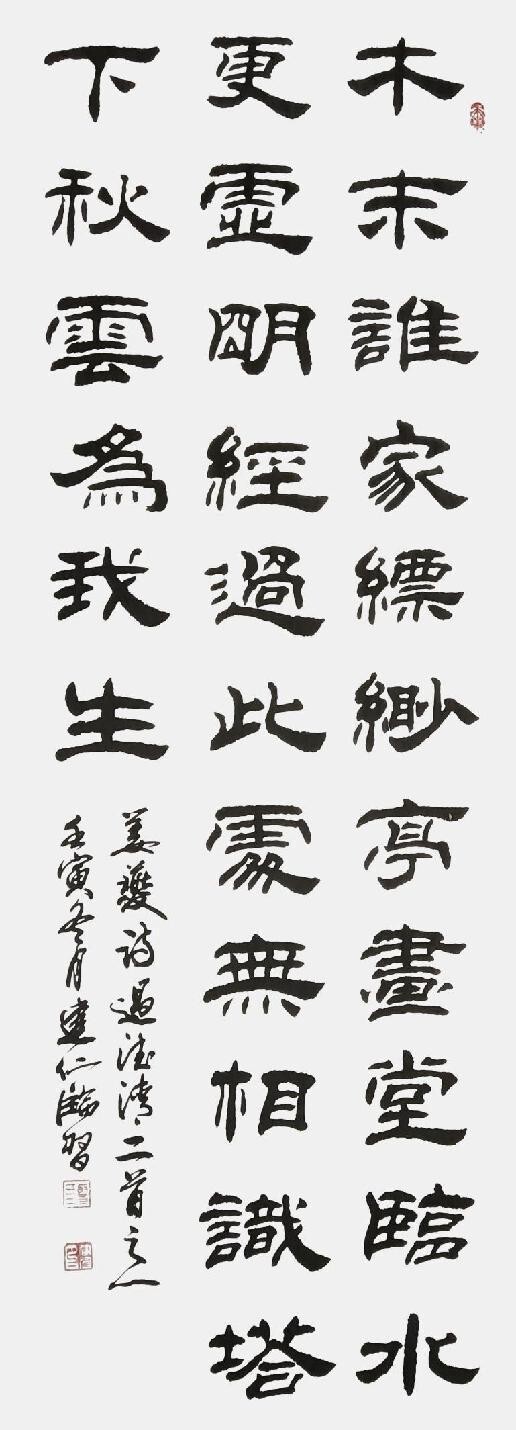 木末誰家縹緲亭畫堂臨水
更虛明經過此處無相識塔
下秋雲為我生
姜夔詩過德清二首之一
壬寅冬月建仁瀚習